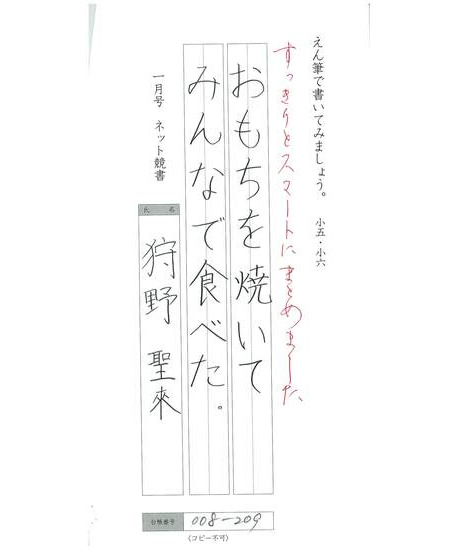 えん筆で書いてみましょう。 小五・小六
すっきりとスマートにまとめました
おもちを焼いて
みんなで食べた。
一月号 ネット競書
氏名
狩野 聖來
台帳番号 008-209
(コピー不可)